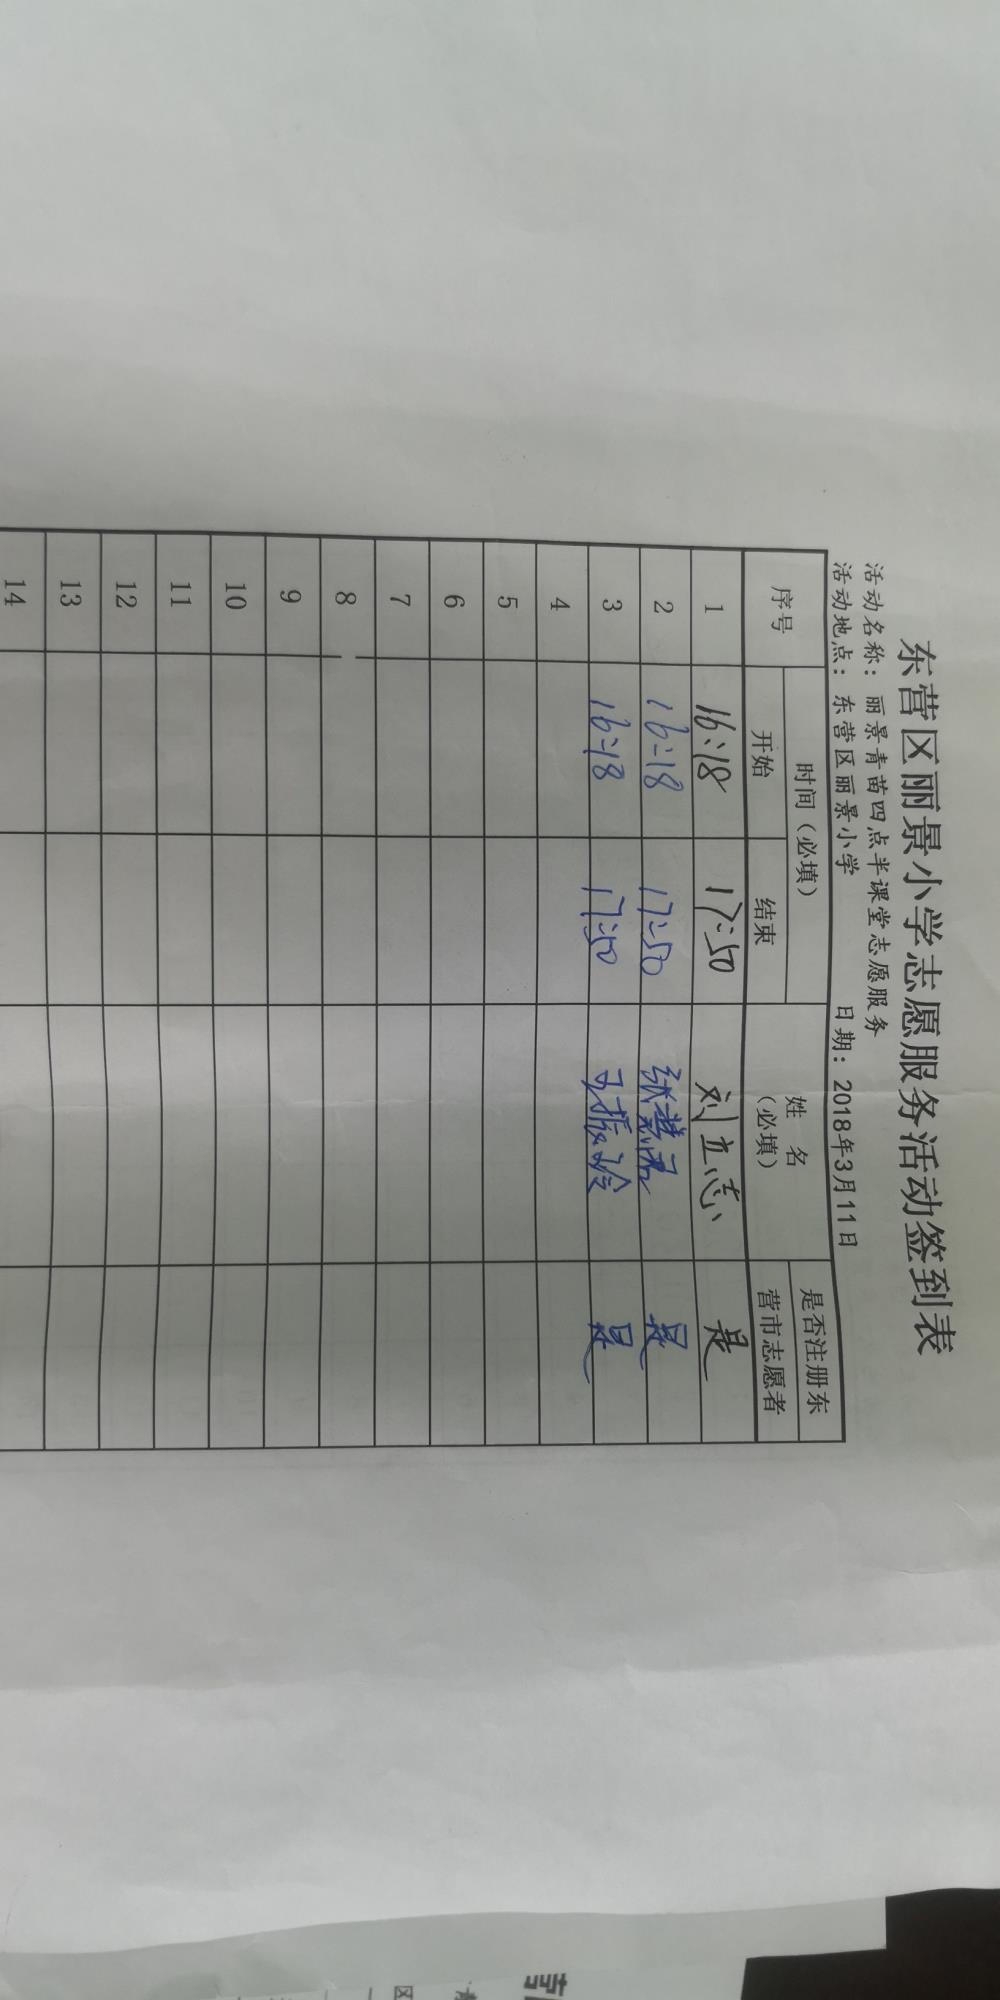 东营区丽景小学志愿服务活动签到表
活动名称：丽景青苗四点半课堂志愿服务
活动地点：东营区丽景小学 日期：2018年3月11日
序号 时间（必填） 姓名（必填） 是否注册东营市志愿者
开始 结束
1 16:18 17:50 刘立志 是
2 16:18 17:50 张慧 是
3 16:18 17:50 王振玲 是
4
5
6
7
8
9
10
11
12
13
14